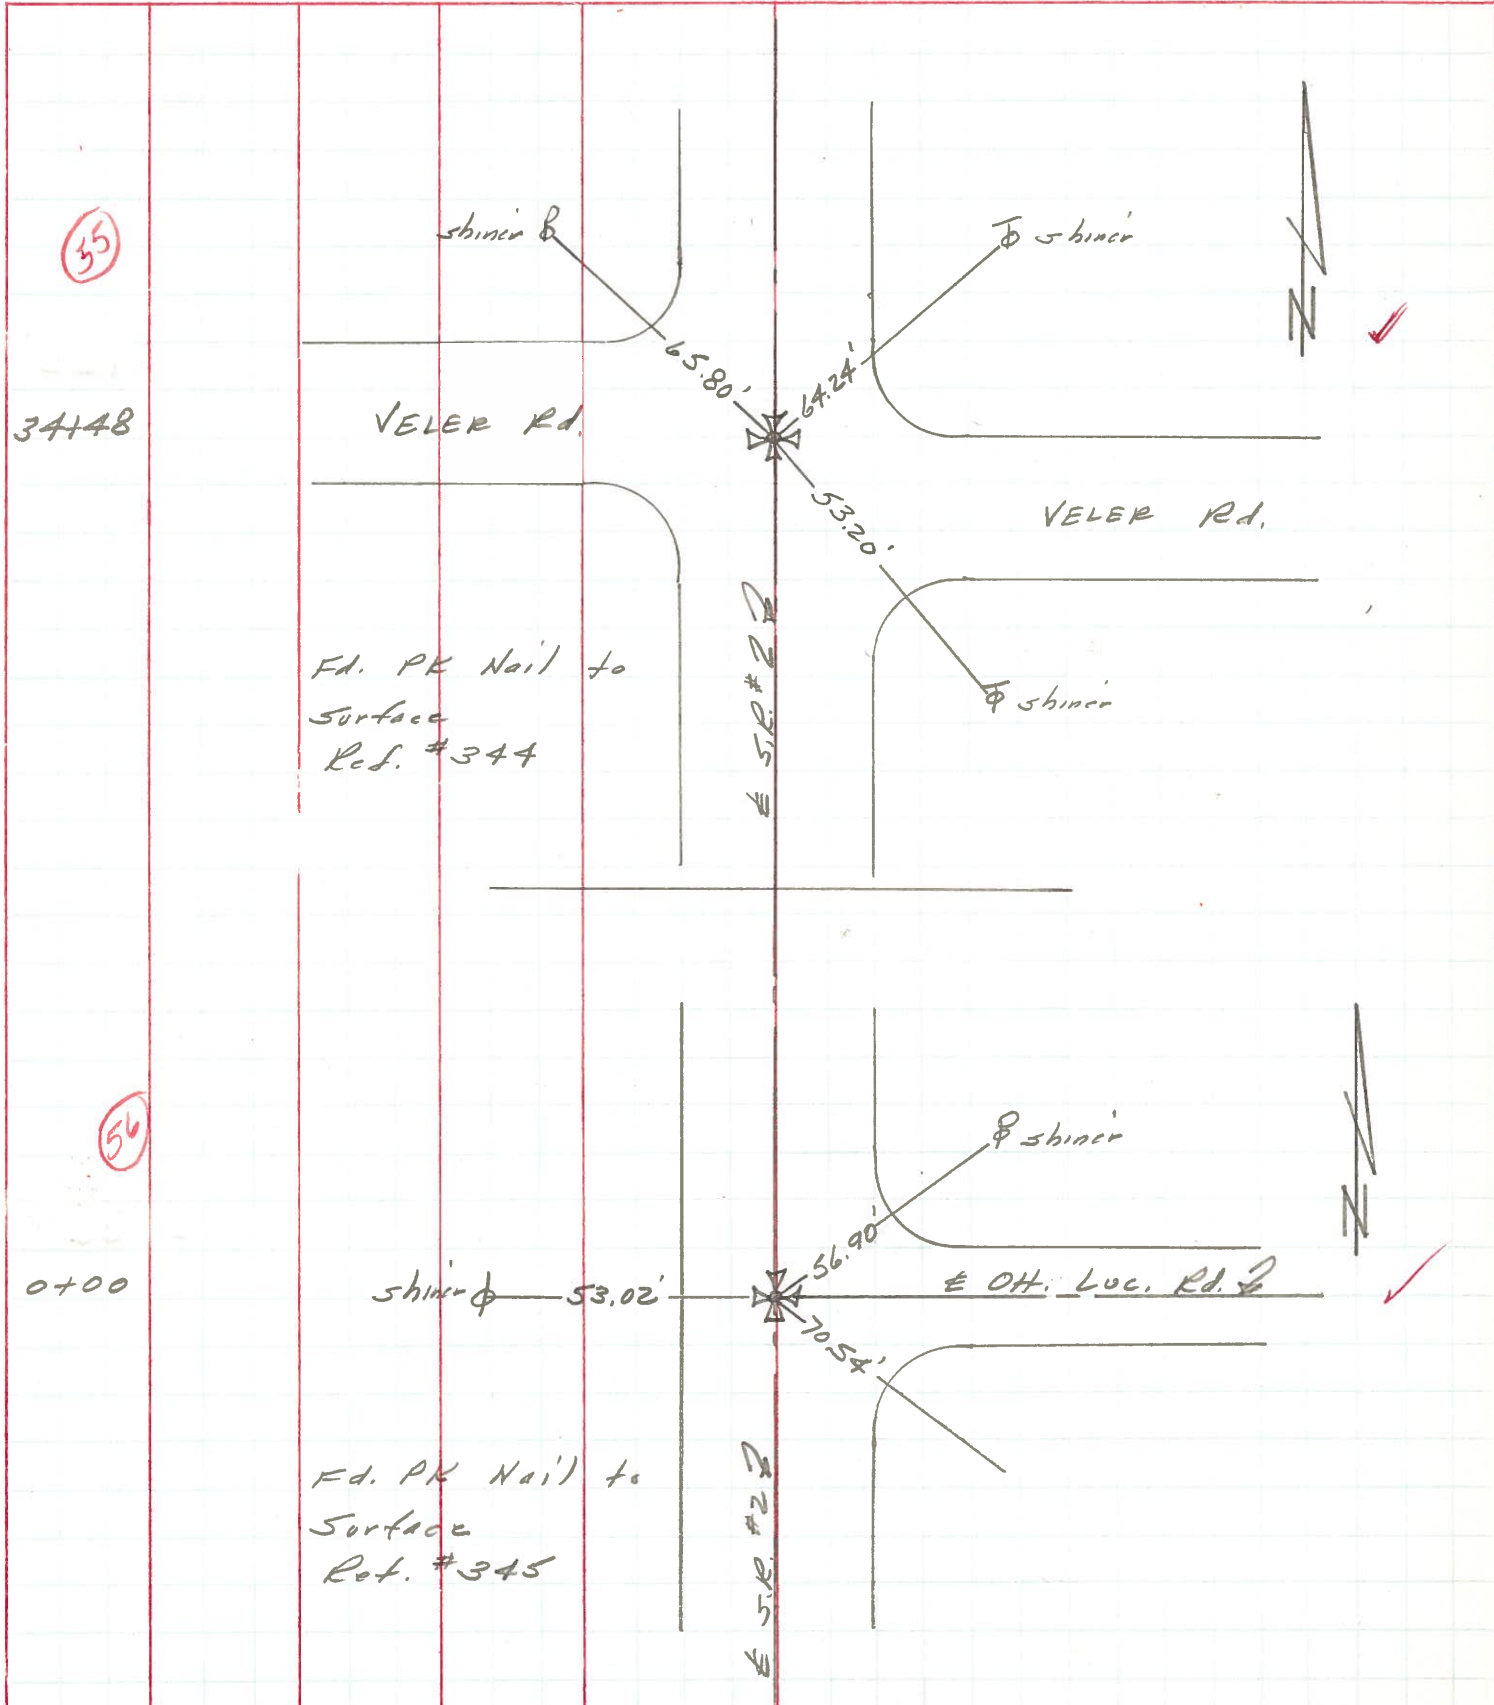 55
shiner
shiner
N
65.80'
64.24'
34+48
VELER Rd.
53.20'
VELER Rd.
℄ S.R. #2
Fd. PK Nail to
Surface
Ref. #344
shiner
56
shiner
N
56.90'
0+00
shiner
53.02'
℄ OH. Luc. Rd.
70.54'
Fd. PK Nail to
Surface
Ref. #345
℄ S.R. #2